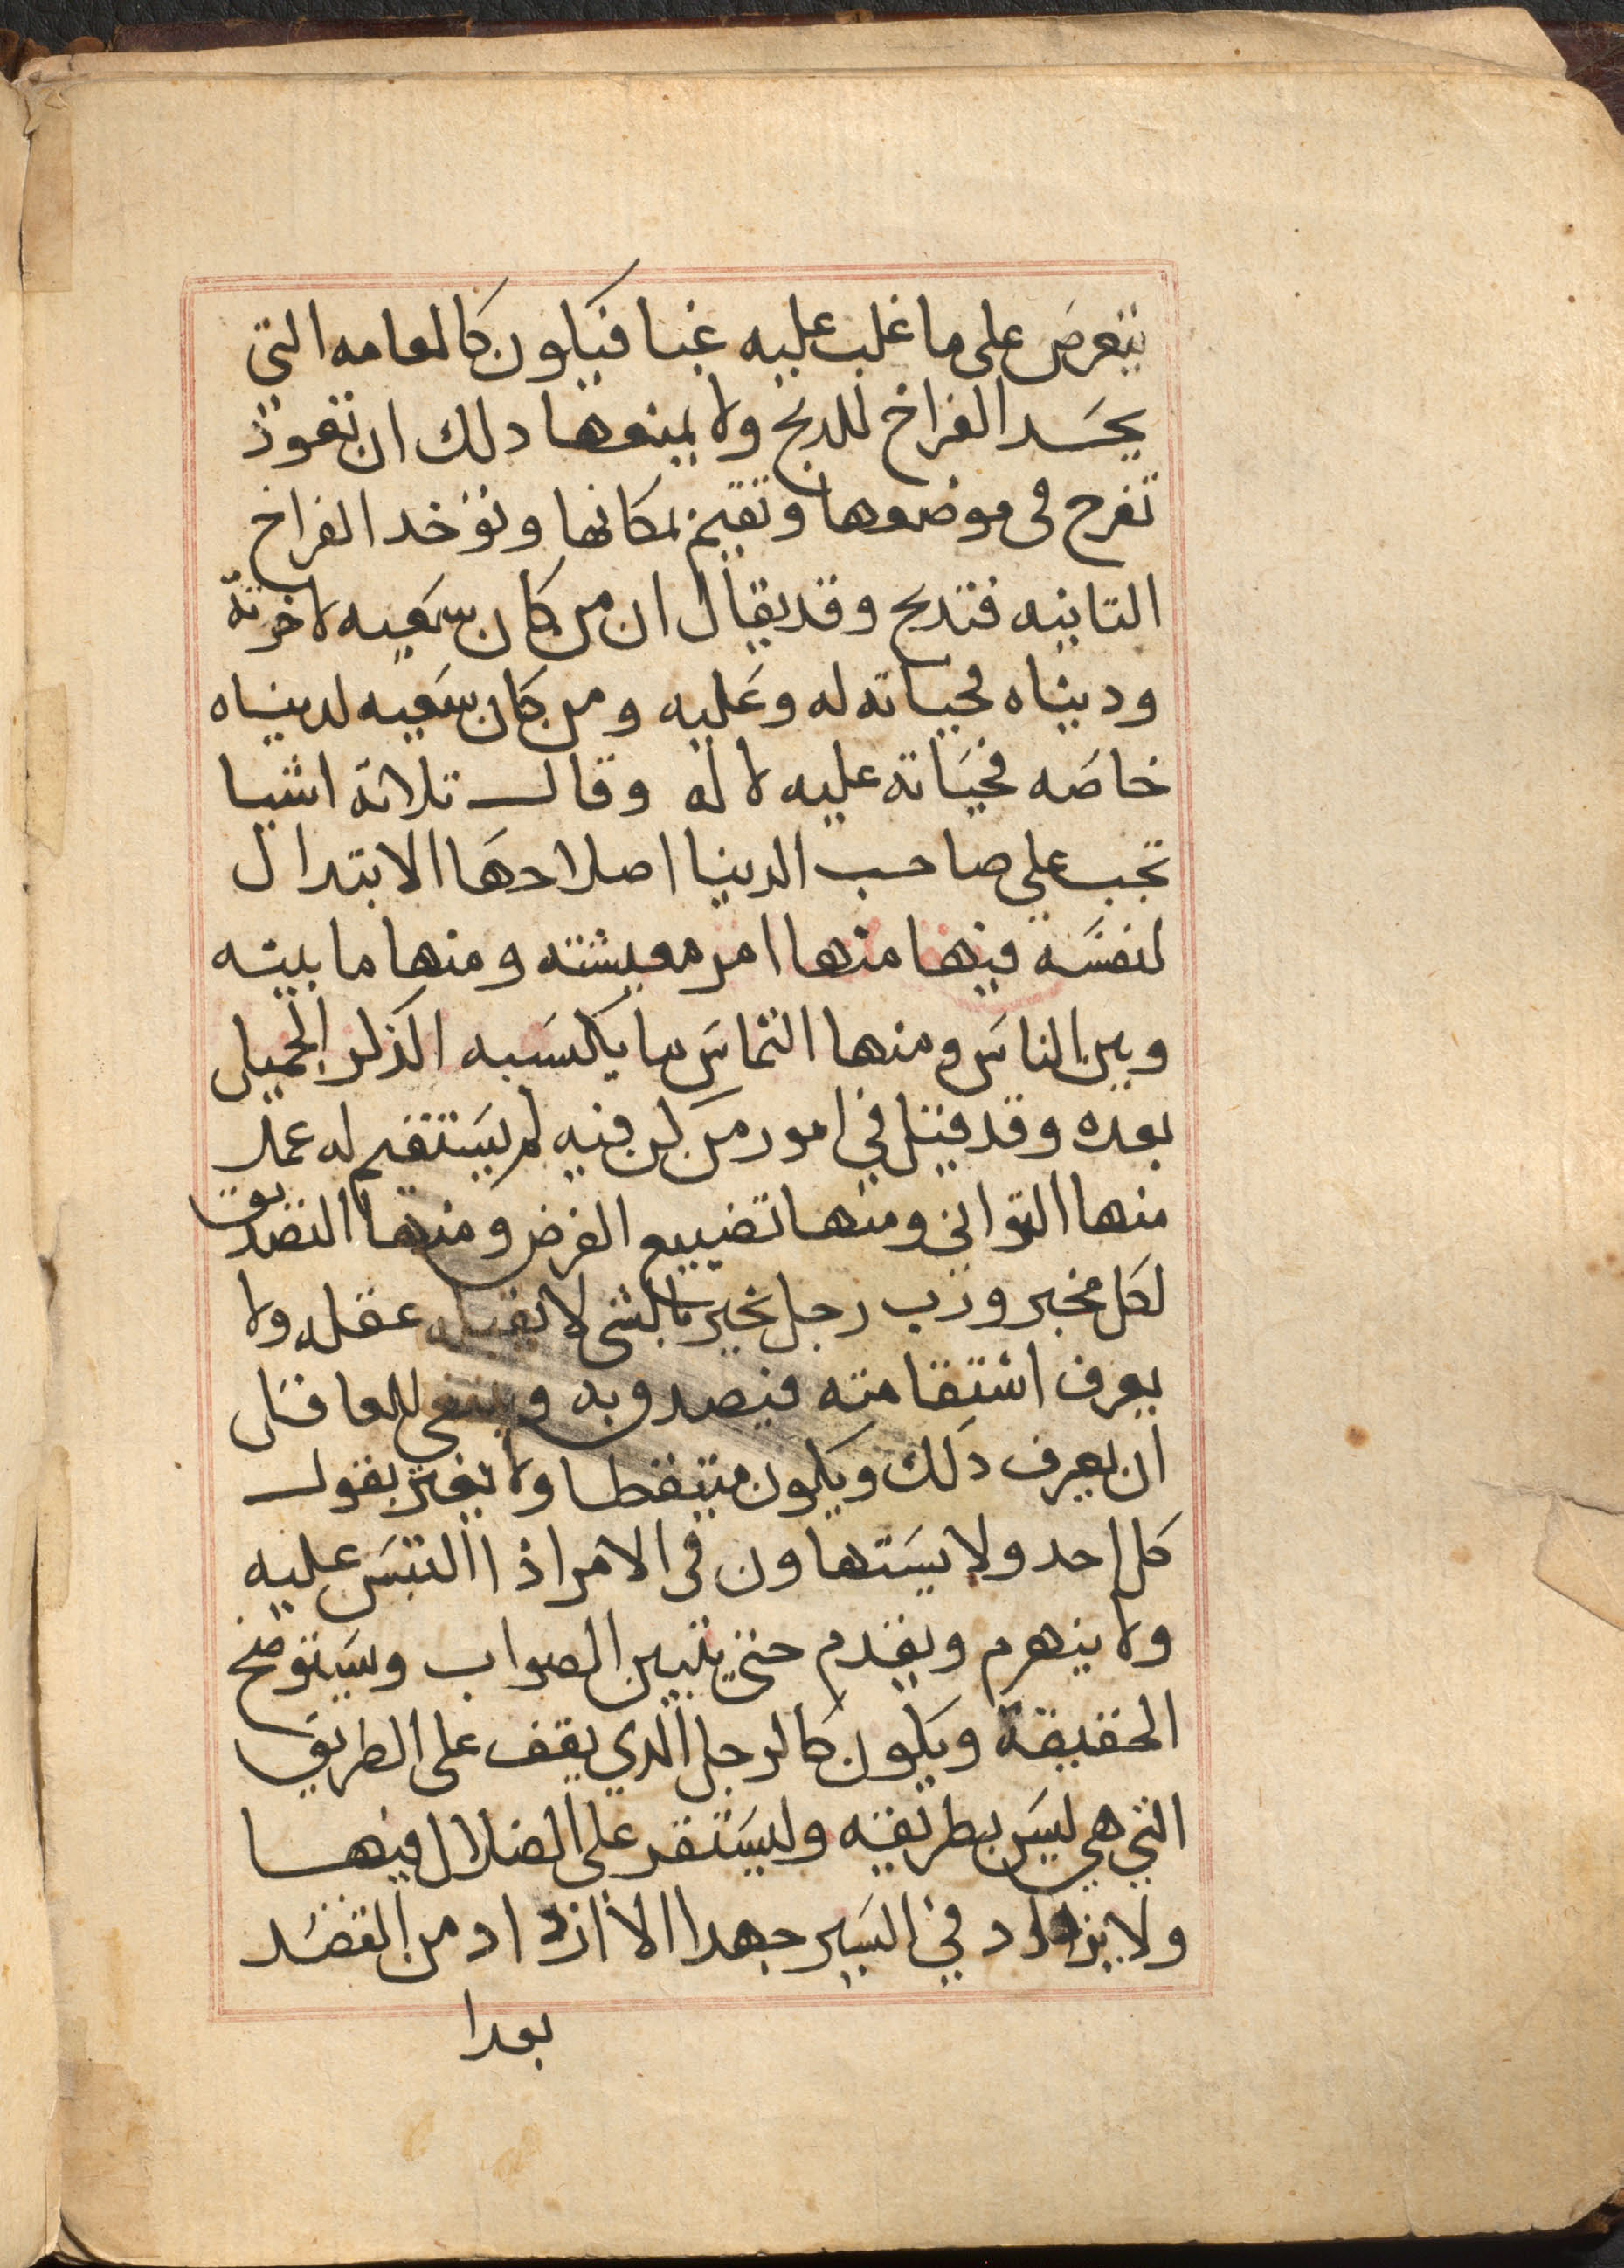 يتعرض على ما غلب عليه غبا فيكون كالمعامه التي
يحسد الفراخ للدبح ولا يمنعها دلك ان تعود
تفرح فى موضعها وتقيم بمكانها وتؤخد الفراخ
التانيه فتدبح وقد يقال ان من كان سعيه لاخرته
ودنياه فحياته له وعليه ومن كان سعيه لدنياه
خاصه فحياته عليه لا له وقال تلاتة اشيا
تجب على صاحب الدنيا اصلاحها الابتدال
لنفسه فيها منها امر معيشته ومنها ما بينه
وبين الناس ومنها التماس ما يكسبه الذكر الجميل
بعده وقد قيل في امور من كن فيه لم يستقم له عمل
منها التواني ومنها تضييع الفرض ومنها التصديق
لكل مخبر ورب رجل يخبر بالشى لا يقبله عقله ولا
يعرف اشتقامته فيصدق به وينبغي للعاقل
ان يعرف دلك ويكون متيقظا ولا يغتر بقول
كل احد ولا يستهاون فى الامر اذا التبس عليه
ولا ينهرم ويقدم حتى يتبين الصواب وستوضح
الحقيقة ويكون كالرجل الدي يقف على الطريق
التي هي ليس بطريقه وليستقر على الضلال فيها
ولا يزداد في السير جهدا الا ازداد من القصد
بعدا